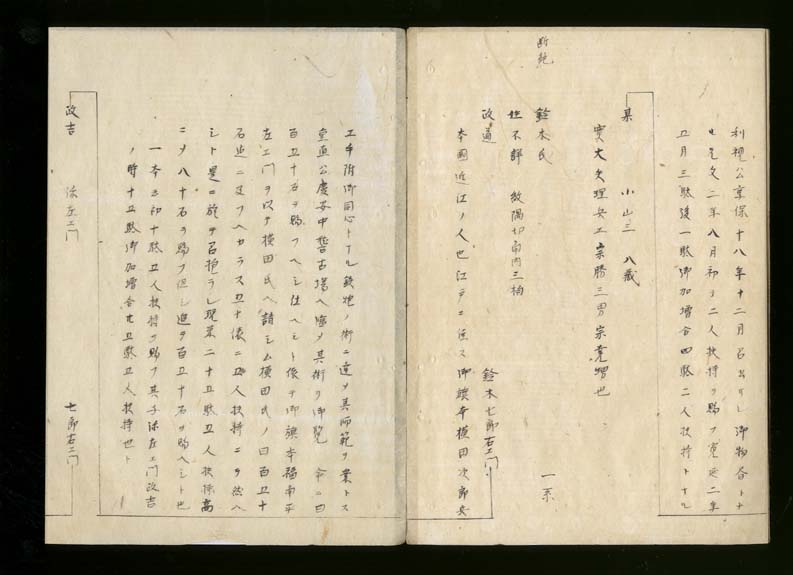 利視公享保十八年十二月召出サレ御物合トナ
ル元文二年八月初テ二人扶持ヲ賜フ寛延二年
五月三駄後一駄御加増合四駄二人扶持トナル
某 小山三八蔵
実大矢理兵エ宗勝三男宗堯甥也
断絶
鈴木氏 一系
姓不詳 紋隅切角内三柏
政道 鈴木七郎右エ門
本國近江ノ人也江戸ニ住ス御旗本横田次郎兵
エ手附御同心トナル鉄炮ノ術ニ達メ其師範ヲ業トス
重直公慶安中稽古場ヘ臨メ其術ヲ御覧 命ニ曰
百五十石ヲ賜フヘシ仕ヘヨト依テ御旗本福南平
左エ門ヲ以テ横田氏ヘ請シム横田氏ノ曰百五十
石迚ニ及フヘカラス五十俵ニ五人扶持ニヲ然ハ
シト是ニ於テ召抱ラレ現米二十五駄五人扶持高
ニメ八十石ヲ賜フ但シ追テ百五十石ヲ賜ヘシト也
一本ニ初十駄五人扶持ヲ賜フ其子弥左エ門政吉
ノ時十五駄御加増合廿五駄五人扶持也ト
政吉 弥左エ門 七郎右エ門